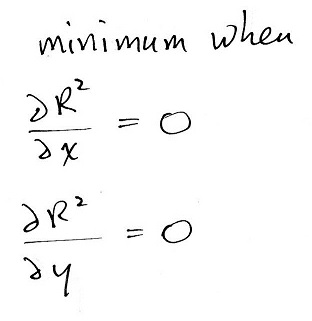 minimum when
∂R²/∂x = 0
∂R²/∂y = 0